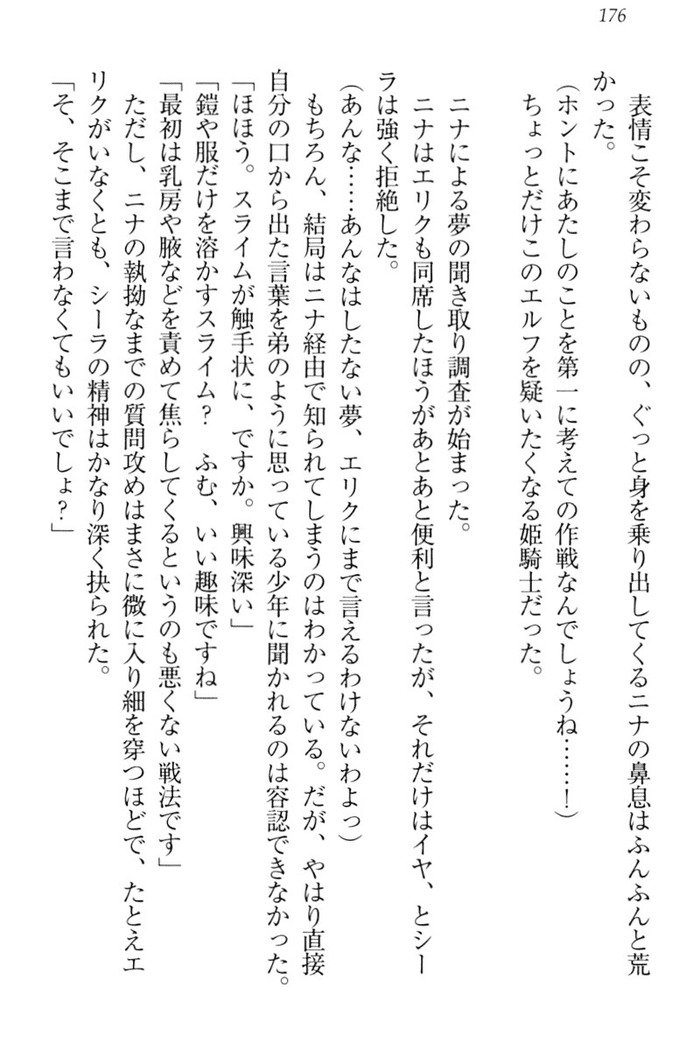 176
表情こそ変わらないものの、ぐっと身を乗り出してくるニナの鼻息はふんふんと荒
かった。
(ホントにあたしのことを第一に考えての作戦なんでしょうね……!)
ちょっとだけこのエルフを疑いたくなる姫騎士だった。
ニナによる夢の聞き取り調査が始まった。
ニナはエリクも同席したほうがあとあと便利と言ったが、それだけはイヤ、とシー
ラは強く拒絶した。
(あんな……あんなはしたない夢、エリクにまで言えるわけないわよっ)
もちろん、結局はニナ経由で知られてしまうのはわかっている。だが、やはり直接
自分の口から出た言葉を弟のように思っている少年に聞かれるのは容認できなかった。
「ほほう。スライムが触手状に、ですか。興味深い」
「鎧や服だけを溶かすスライム? ふむ、いい趣味ですね」
「最初は乳房や腋などを責めて焦らしてくるというのも悪くない戦法です」
ただし、ニナの執拗なまでの質問攻めはまさに微に入り細を穿つほどで、たとえエ
リクがいなくとも、シーラの精神はかなり深く抉られた。
「そ、そこまで言わなくてもいいでしょ?」